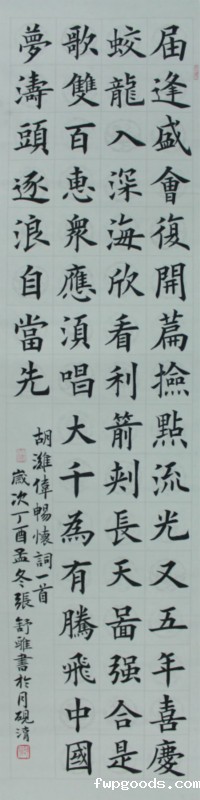 届逢盛會復開篇撿點流光又五年喜慶
蛟龍入深海欣看利箭刾長天啚强合是
歌雙百惠衆應湏唱大千為有騰飛中國
夢濤頭逐浪自當先
胡濰偉暢懷詞一首
歲次丁酉孟冬張舒雅書於月硯清
fwpgoods.com